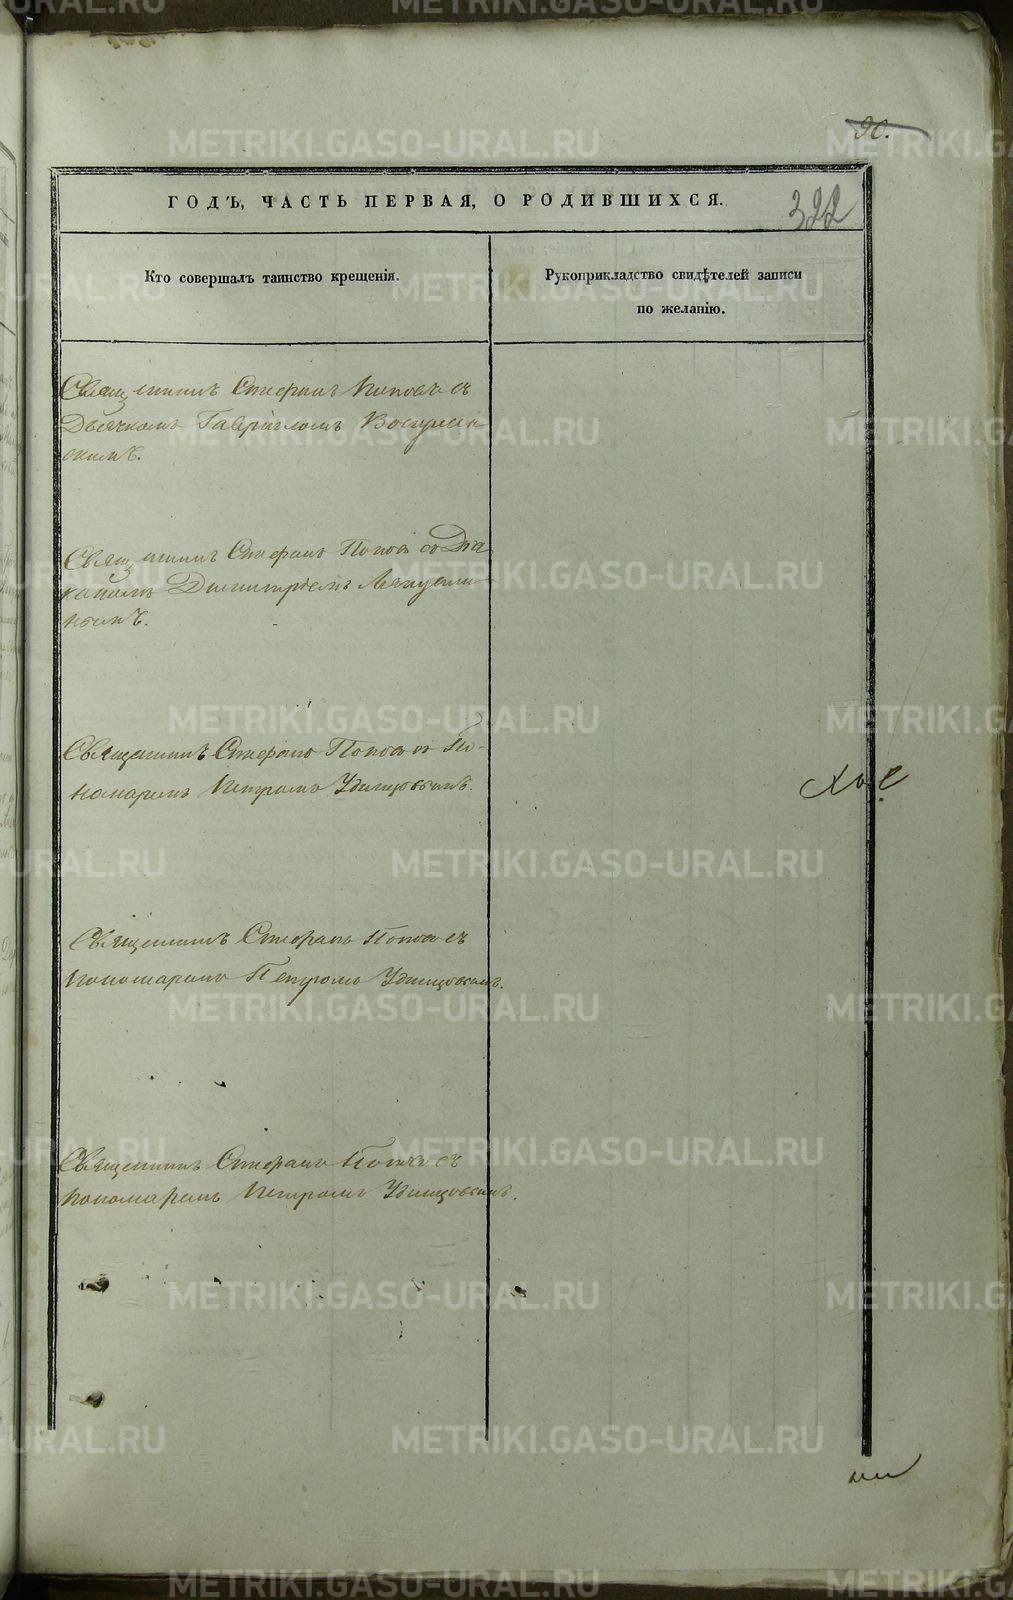 90.
322
ГОДЪ, ЧАСТЬ ПЕРВАЯ, О РОДИВШИХСЯ.
Кто совершалъ таинство крещенія.
Рукоприкладство свидѣтелей записи
по желанію.
Священникъ Стефанъ Поповъ съ
Дьячкомъ Гавріиломъ Воскресен-
скимъ.
Священникъ Стефанъ Поповъ со Діа
кономъ Димитріемъ
Священникъ Стефанъ Поповъ съ По-
номаремъ Петромъ Удинцовскимъ.
Священникъ Стефанъ Поповъ съ
пономаремъ Петромъ Удинцовскимъ.
Священникъ Стефанъ Поповъ съ
пономаремъ Петромъ Удинцовскимъ.
METRIKI.GASO-URAL.RU